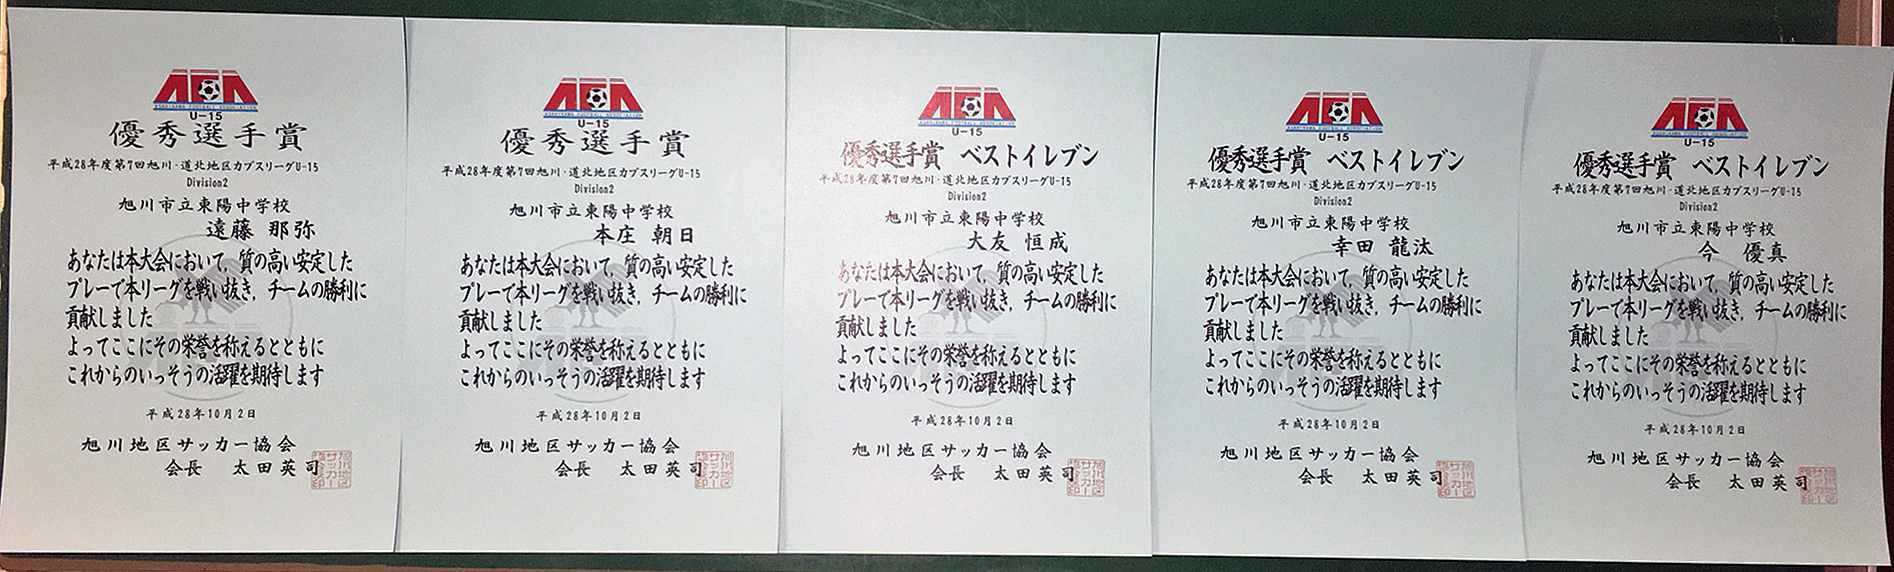 AFA
ASAHIKAWA FOOTBALL ASSOCIATION
U-15
優秀選手賞
平成28年度第7回旭川・道北地区カブスリーグU-15
Division2
旭川市立東陽中学校
遠藤 那弥
あなたは本大会において，質の高い安定した
プレーで本リーグを戦い抜き，チームの勝利に
貢献しました
よってここにその栄誉を称えるとともに
これからのいっそうの活躍を期待します
平成28年10月2日
旭川地区サッカー協会
会長 太田英司
AFA
ASAHIKAWA FOOTBALL ASSOCIATION
U-15
優秀選手賞
平成28年度第7回旭川・道北地区カブスリーグU-15
Division2
旭川市立東陽中学校
本庄 朝日
あなたは本大会において，質の高い安定した
プレーで本リーグを戦い抜き，チームの勝利に
貢献しました
よってここにその栄誉を称えるとともに
これからのいっそうの活躍を期待します
平成28年10月2日
旭川地区サッカー協会
会長 太田英司
AFA
ASAHIKAWA FOOTBALL ASSOCIATION
U-15
優秀選手賞 ベストイレブン
平成28年度第7回旭川・道北地区カブスリーグU-15
Division2
旭川市立東陽中学校
大友 恒成
あなたは本大会において，質の高い安定した
プレーで本リーグを戦い抜き，チームの勝利に
貢献しました
よってここにその栄誉を称えるとともに
これからのいっそうの活躍を期待します
平成28年10月2日
旭川地区サッカー協会
会長 太田英司
AFA
ASAHIKAWA FOOTBALL ASSOCIATION
U-15
優秀選手賞 ベストイレブン
平成28年度第7回旭川・道北地区カブスリーグU-15
Division2
旭川市立東陽中学校
幸田 龍汰
あなたは本大会において，質の高い安定した
プレーで本リーグを戦い抜き，チームの勝利に
貢献しました
よってここにその栄誉を称えるとともに
これからのいっそうの活躍を期待します
平成28年10月2日
旭川地区サッカー協会
会長 太田英司
AFA
ASAHIKAWA FOOTBALL ASSOCIATION
U-15
優秀選手賞 ベストイレブン
平成28年度第7回旭川・道北地区カブスリーグU-15
Division2
旭川市立東陽中学校
今 優真
あなたは本大会において，質の高い安定した
プレーで本リーグを戦い抜き，チームの勝利に
貢献しました
よってここにその栄誉を称えるとともに
これからのいっそうの活躍を期待します
平成28年10月2日
旭川地区サッカー協会
会長 太田英司